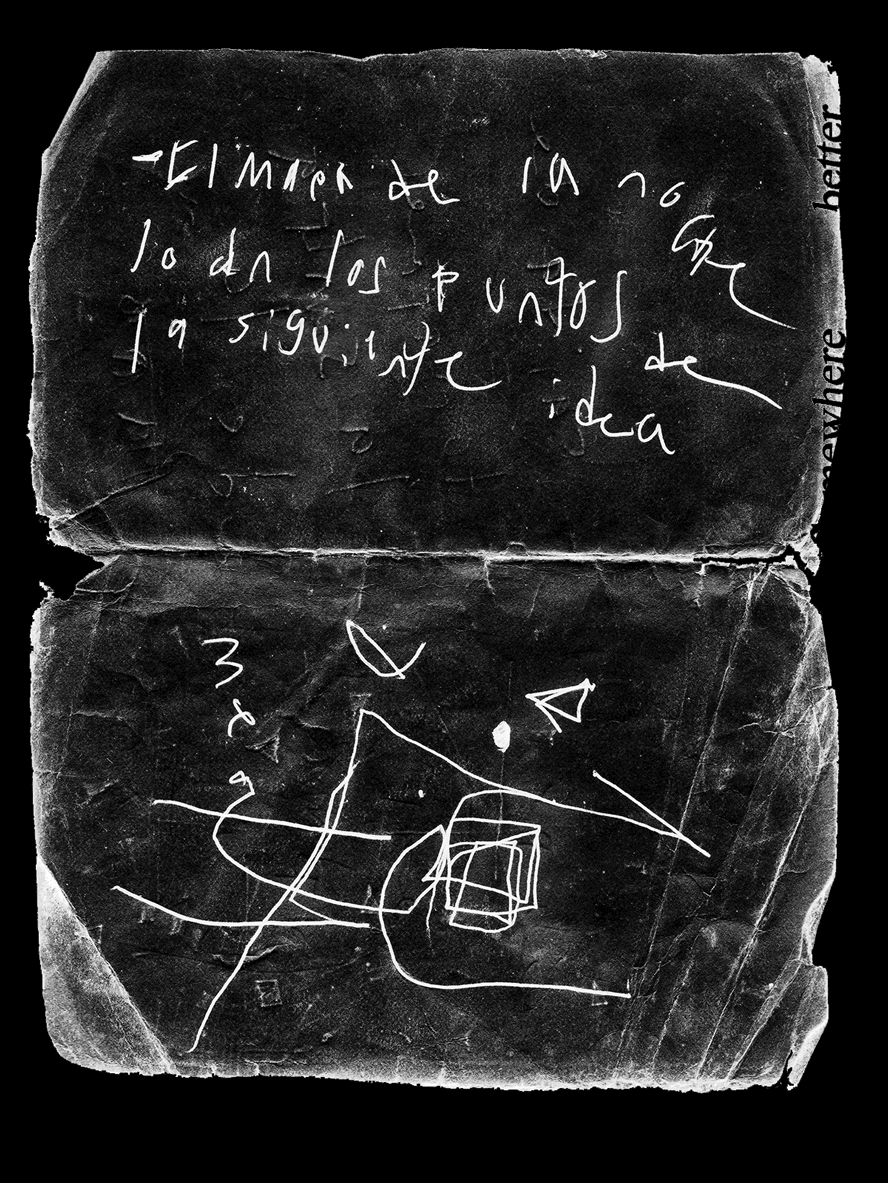 -El mapa de la noche
lo dan los puntos de
la siguiente idea
better
somewhere
3
x
9